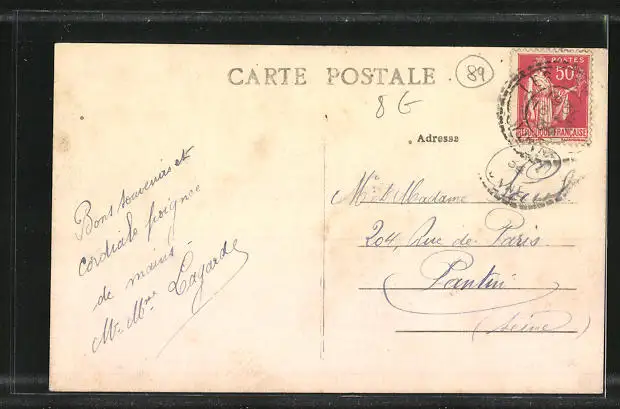 CARTE POSTALE
89
8 G
POSTES
50
REPUBLIQUE FRANÇAISE
Adresse
Bons souvenirs et
cordiale poignée
de mains -
Mr Mme Lagarde
Mr et Madame
204, Rue de Paris
Pantin
(Seine)